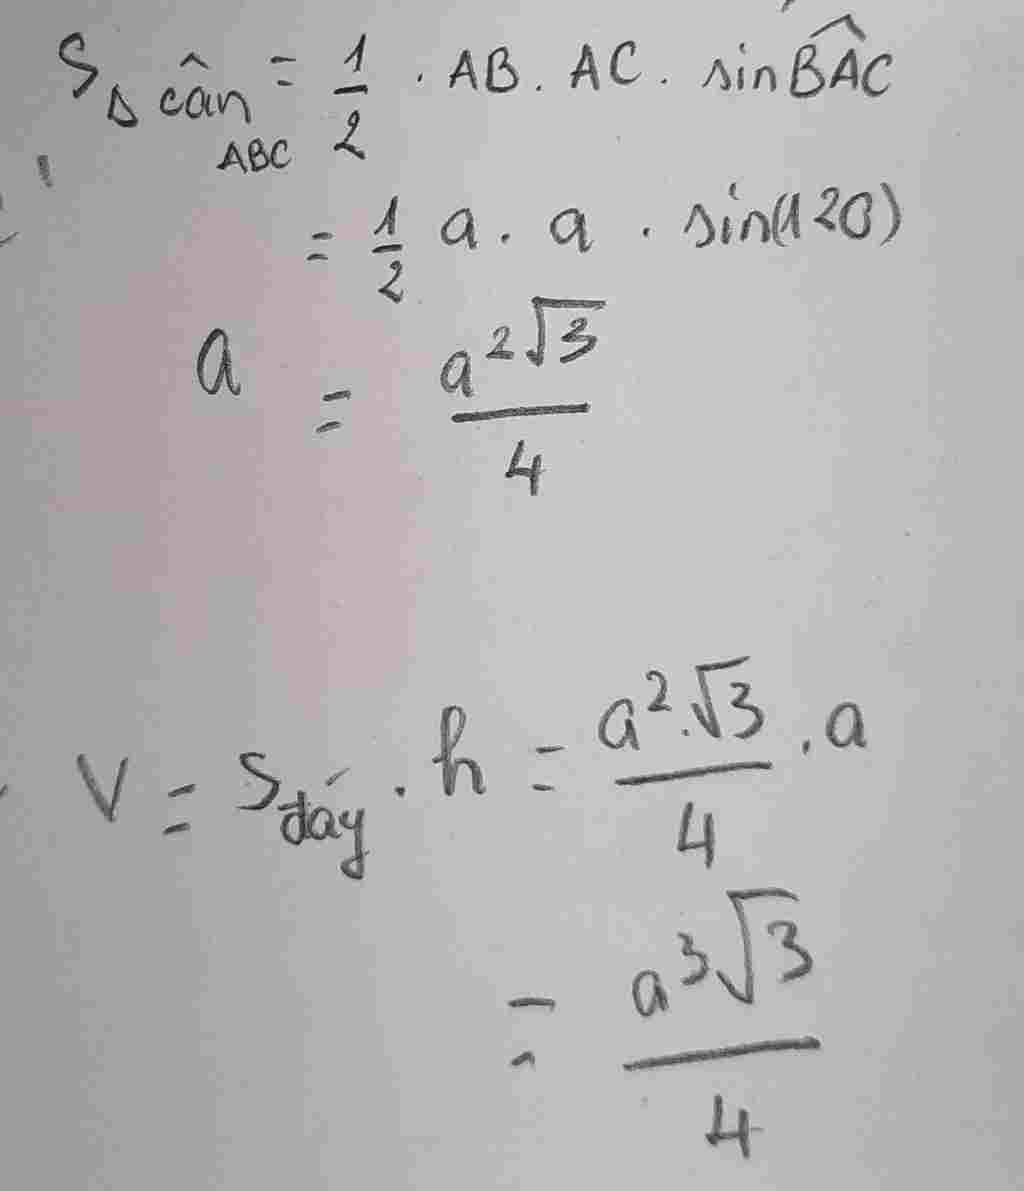 S Δ cân ABC = 1/2 . AB . AC . sin BAC
= 1/2 a . a . sin(120)
a = a²√3 / 4
V = S đáy . h = a² . √3 / 4 . a
= a³√3 / 4